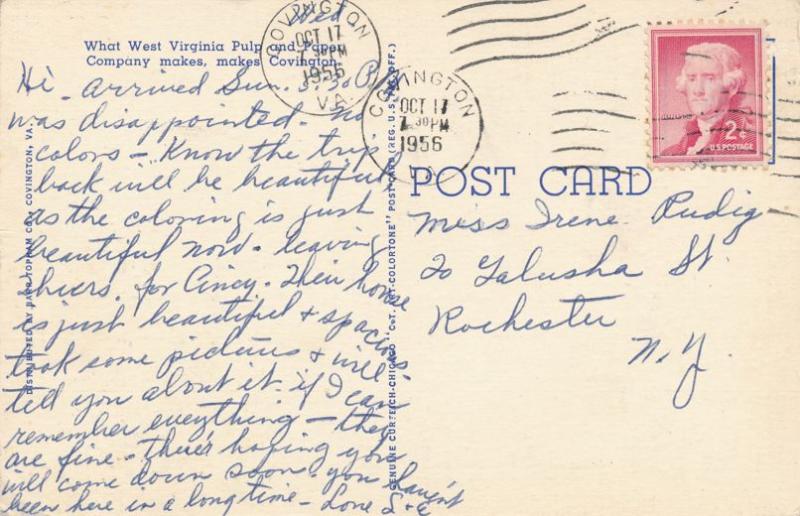 Wed
What West Virginia Pulp and Paper
Company makes, makes Covington.
Hi - arrived Sun. 3:30 P.M.
was disappointed - no
colors - Know the trip
back will be beautiful
as the coloring is just
beautiful now - leaving
for Cincy. Their house
is just beautiful & spacious
took some pictures & will
tell you about it if I can
remember everything - they
are fine - there's hoping you
will come down soon. you haven't
been here in a long time - Love S & E
DISTRIBUTED BY COVINGTON, VA.
GENUINE CURTEICH-CHICAGO "C.T. ART-COLORTONE" POST CARD (REG. U.S. PAT. OFF.)
COVINGTON
OCT 17
7 30 PM
1956
VA.
COVINGTON
OCT 17
7 30 PM
1956
2¢
U.S. POSTAGE
POST CARD
Miss Irene Rudig
20 Galusha St.
Rochester
N.Y.